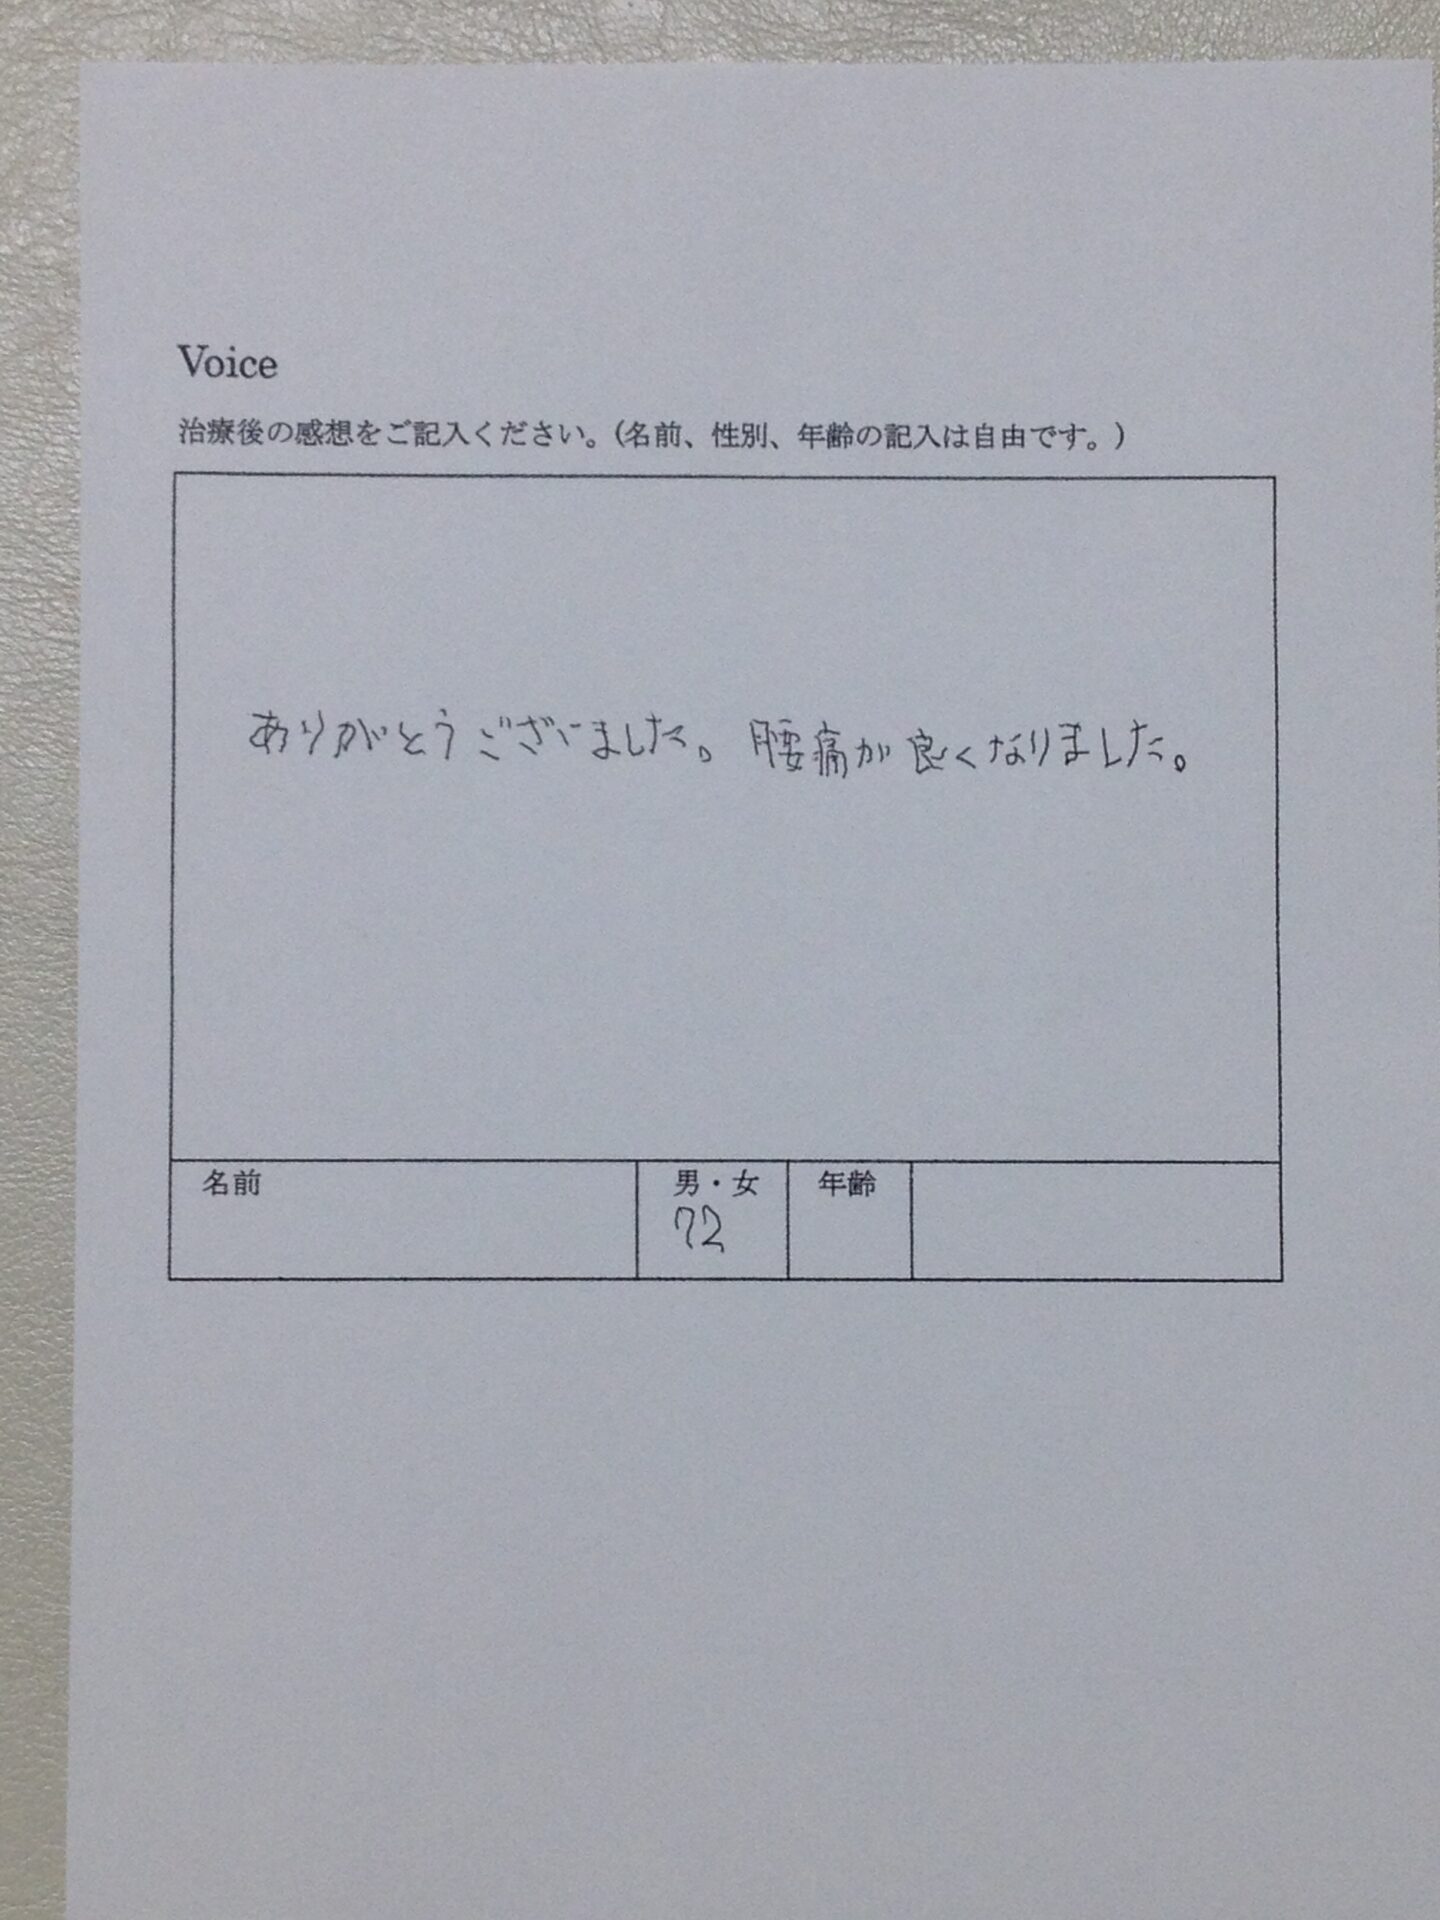 Voice
治療後の感想をご記入ください。（名前、性別、年齢の記入は自由です。）
ありがとうございました。腰痛が良くなりました。
名前 男・女 年齢
72